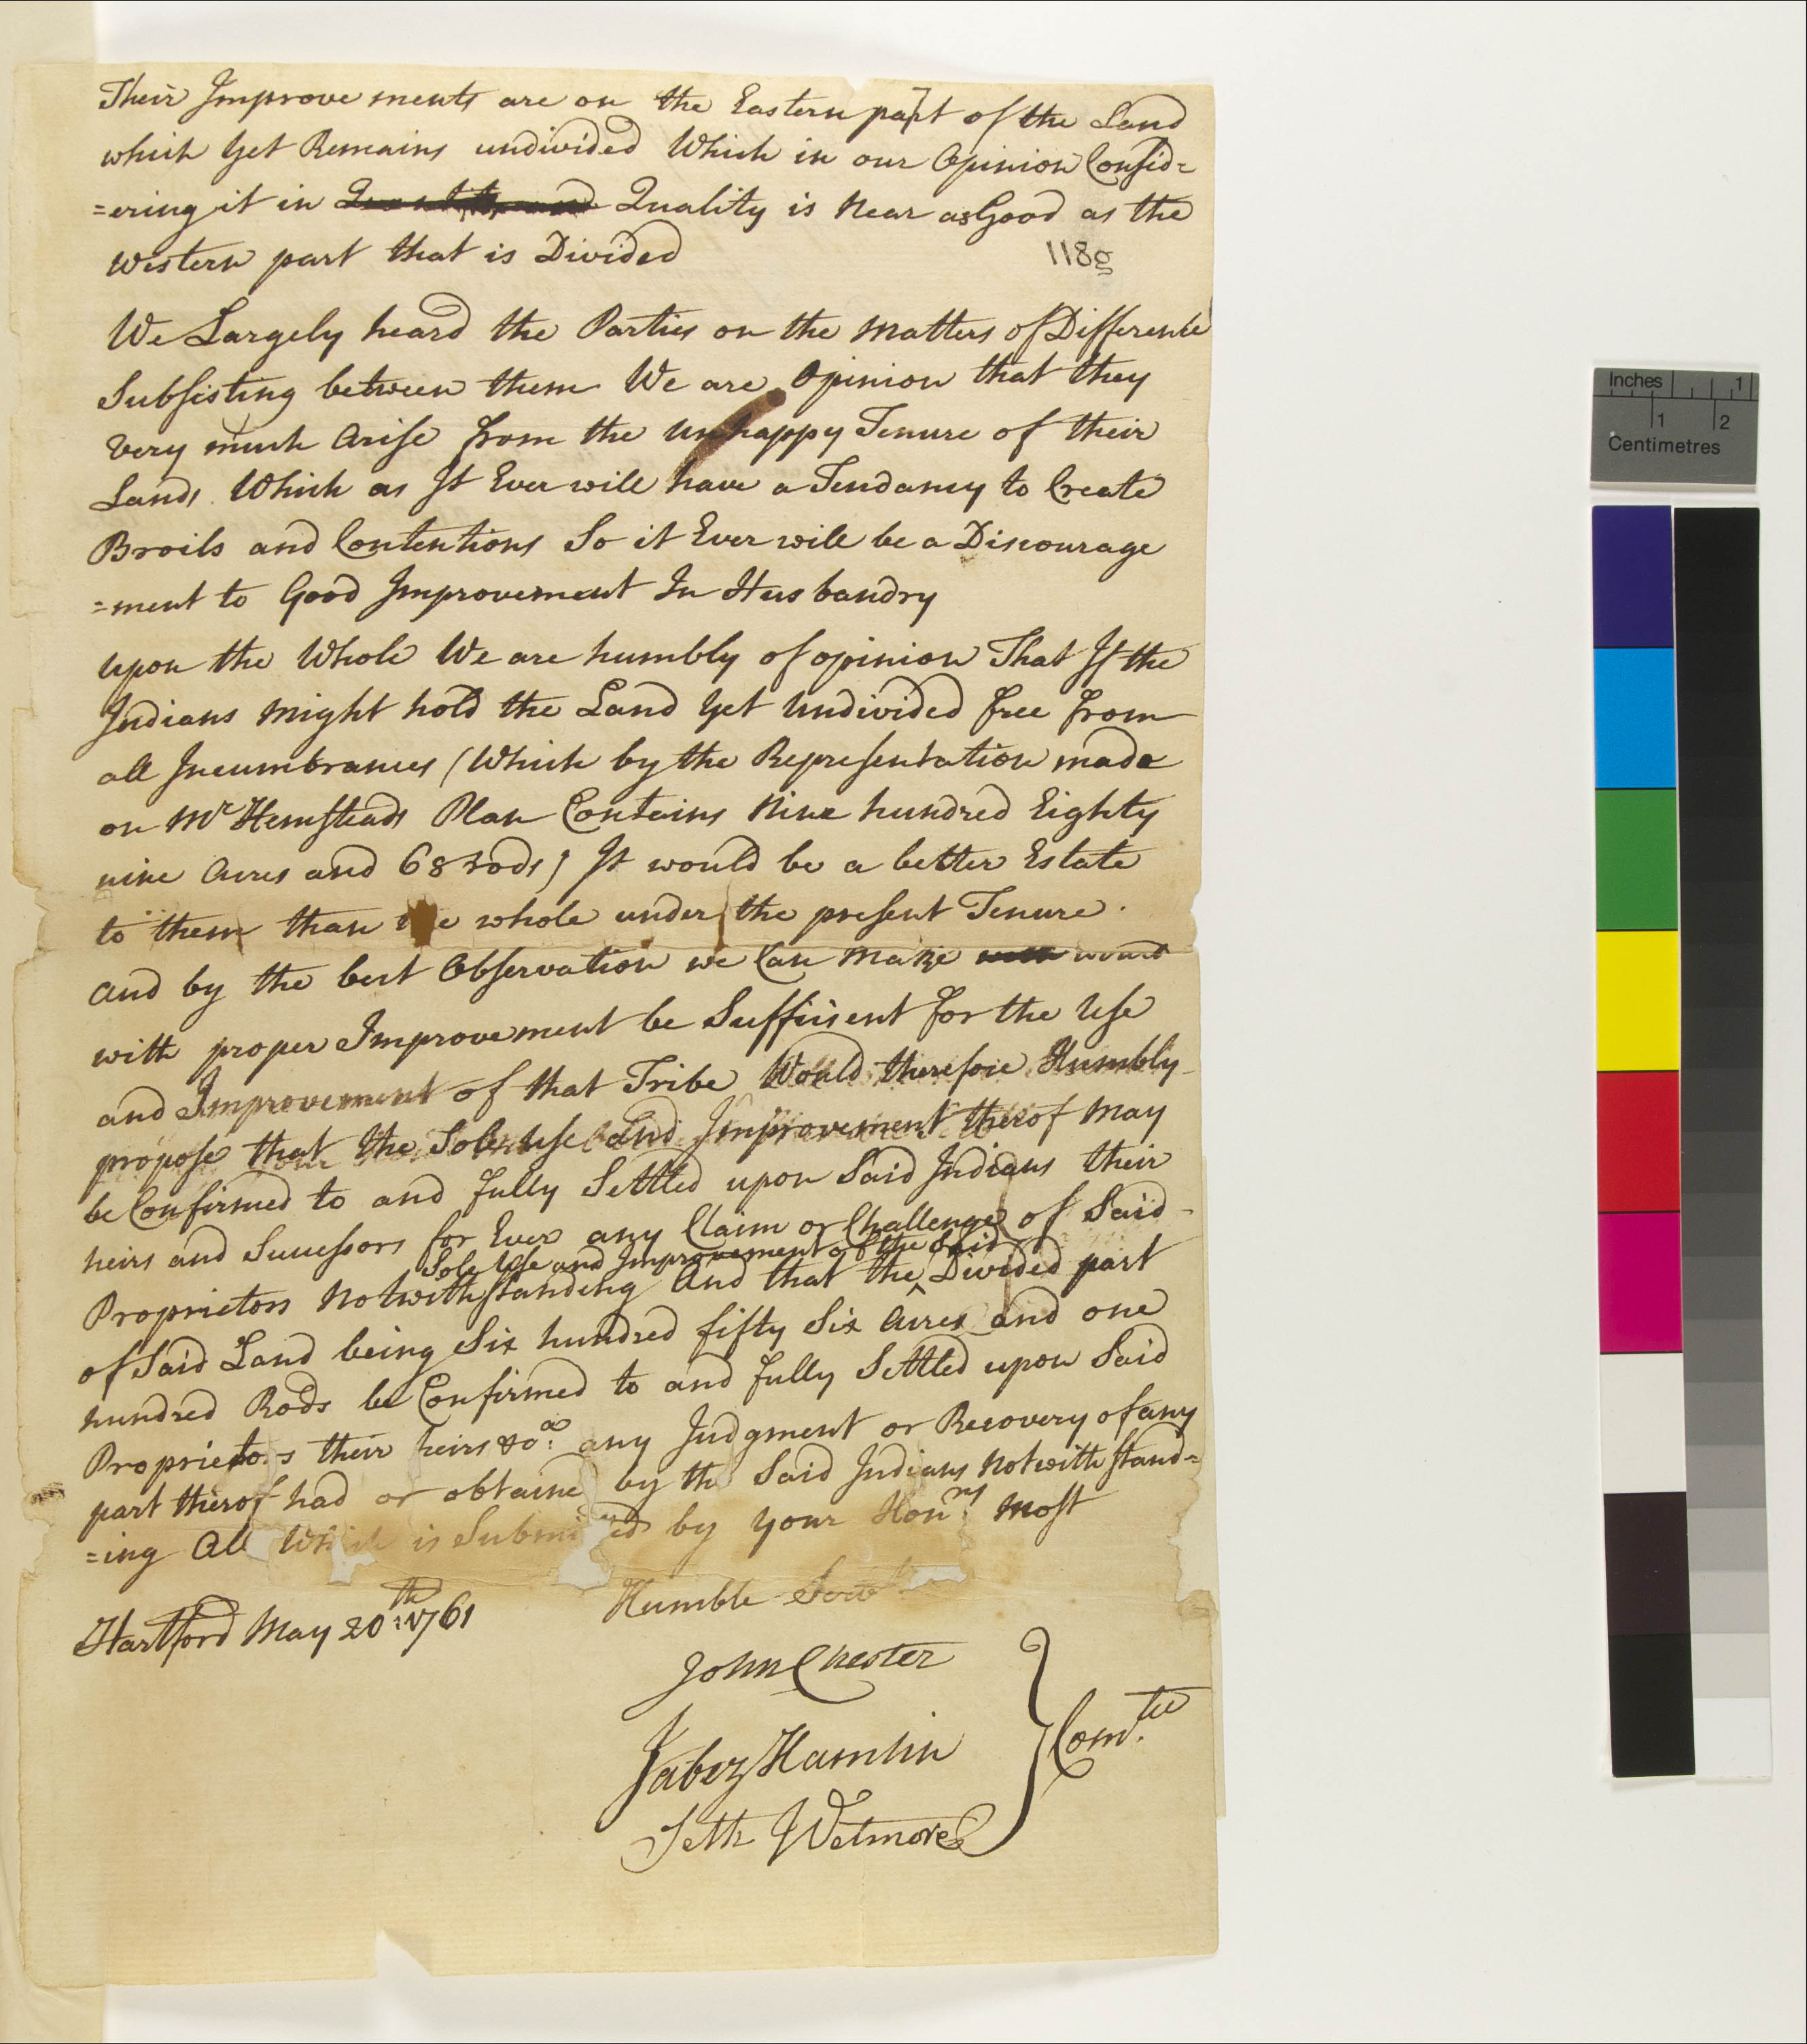 Their Improvements are on the Eastern part of the Land
which yet Remains undivided Which in our Opinion Consid=
=ering it in Quantity and Quality is Near as Good as the
Western part that is Divided
118g
We Largely heard the Parties on the Matters of Difference
Subsisting between them We are Opinion that they
very much Arise from the unhappy Tenure of their
Lands Which as It Ever will have a Tendancy to Create
Broils and Contentions So it Ever will be a Discourage
=ment to Good Improvement In Husbandry
upon the Whole We are humbly of opinion That If the
Indians Might hold the Land Yet Undivided free from
all Incumbrances (Which by the Representation made
on Mr Hemsteads Plan Contains Nine hundred Eighty
nine Acres and 68 rods) It would be a better Estate
to them than the whole under the present Tenure.
and by the best Observation we Can Make would
with proper Improvement be Sufficient for the Use
and Improvement of that Tribe Would therefore Humbly
propose that the Sole Use and Improvement therof May
be Confirmed to and fully Settled upon Said Indians their
heirs and Successors for Ever any Claim or Challenge of Said
Sole Use and Improvement of the Said
Proprietors Notwithstanding And that the ^ Divided part
of Said Land being Six hundred fifty Six Acres and one
hundred Rods be Confirmed to and fully Settled upon Said
Proprietors their heirs &c. any Judgment or Recovery of any
part therof had or obtained by the Said Indians Notwithstand=
=ing All Which is Submitted by your Honrs. Most
Humble Servts
Hartford May 20th: 1761
John Chester
Jabez Hamlin
Com.tee
Seth Wetmore
Inches 1
1 2
Centimetres